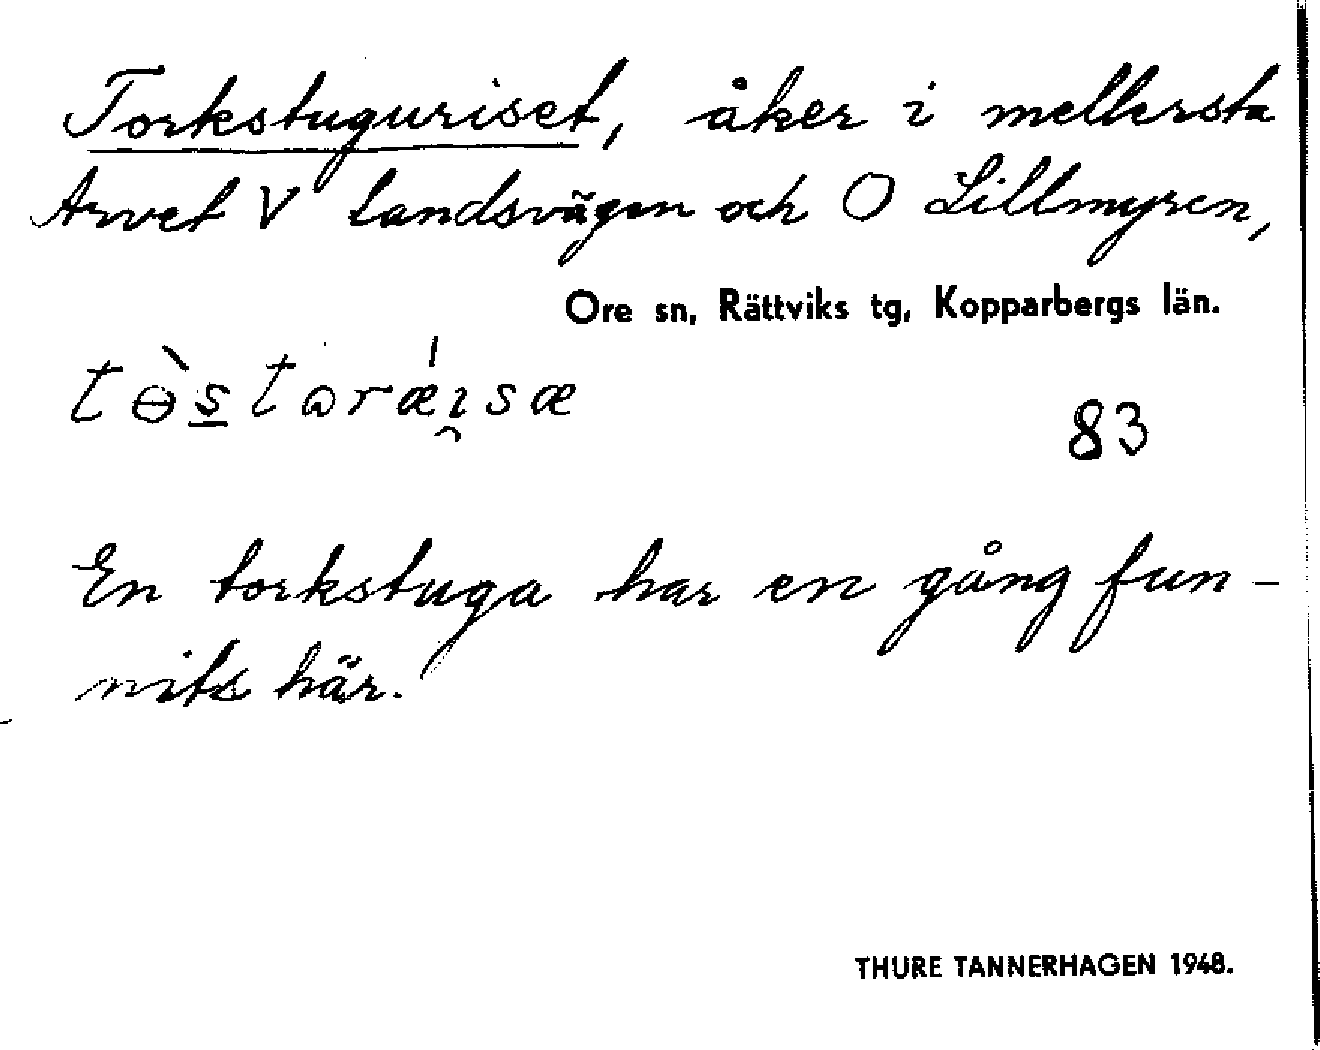 Torkstuguriset, åker i mellersta
Arvet V landsvägen och O Lillmyren,
Ore sn, Rättviks tg, Kopparbergs län.
tɵ̀s̲tɷrǽı̯sæ
83
En torkstuga har en gång fun-
nits här.
THURE TANNERHAGEN 1948.